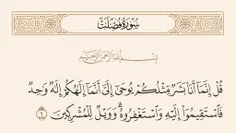 سورة فصلت
بسم الله الرحمن الرحيم
قُلْ إِنَّمَا أَنَا۠ بَشَرٌ مِّثْلُكُمْ يُوحَىٰٓ إِلَىَّ أَنَّمَآ إِلَٰهُكُمْ إِلَٰهٌ وَٰحِدٌ
فَٱسْتَقِيمُوٓا۟ إِلَيْهِ وَٱسْتَغْفِرُوهُ ۗ وَوَيْلٌ لِّلْمُشْرِكِينَ ٦